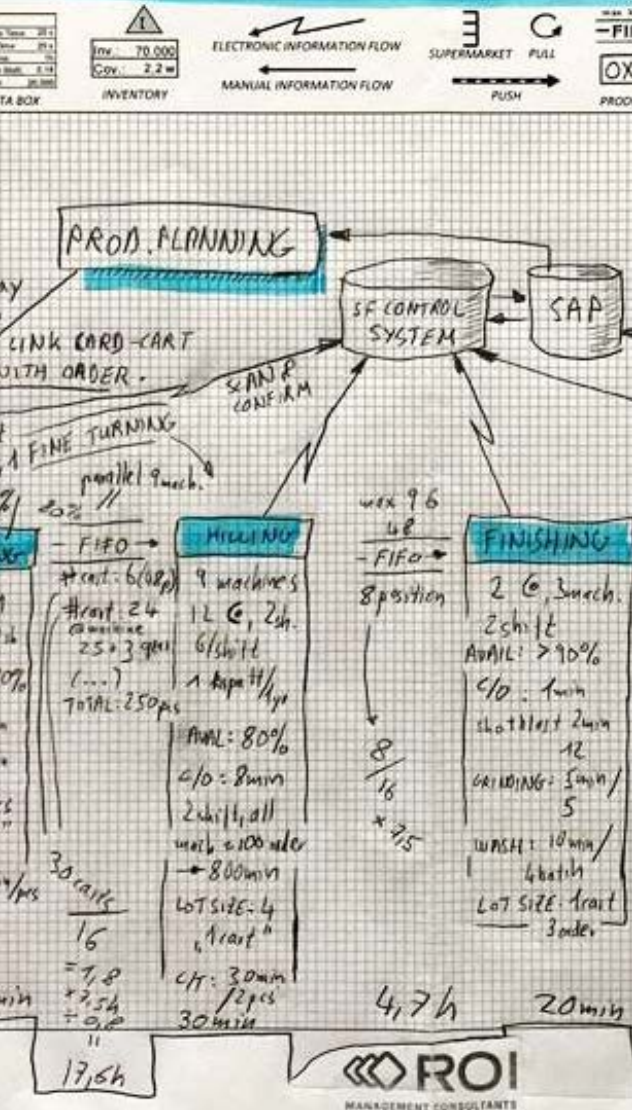 Inv.: 70.000
Cov.: 2,2 w
INVENTORY
ELECTRONIC INFORMATION FLOW
MANUAL INFORMATION FLOW
SUPERMARKET
PULL
PUSH
TA BOX
OX
PROD
PROD. PLANNING
SF CONTROL
SYSTEM
SAP
AY
LINK CARD-CART
WITH ORDER.
SCAN &
CONFIRM
FINE TURNING
parallel 9 mach.
80%
- FIFO →
#cart: 6(48p)
#cart 24
@machine
(...)
TOTAL: 250 pcs
MILLING
9 machines
2sh.
6/shift
AVAIL: 80%
C/O: 8min
2shift, all
→ 800min
LOT SIZE: 4
"1cart"
C/T: 30min
/2pcs
30min
max 96
48
- FIFO →
8 position
8
/
16
× 7,5
4,7h
FINISHING
2 @, 3mach.
2shift
AVAIL: >90%
C/O: 1min
shotblast 2min
12
GRINDING: 5min/
5
WASH: 10min/
4batch
LOT SIZE: 1cart
3order
20min
30 carts
16
=1,8
*7,5h
÷ 0,8
"
17,6h
min
ROI
MANAGEMENT CONSULTANTS